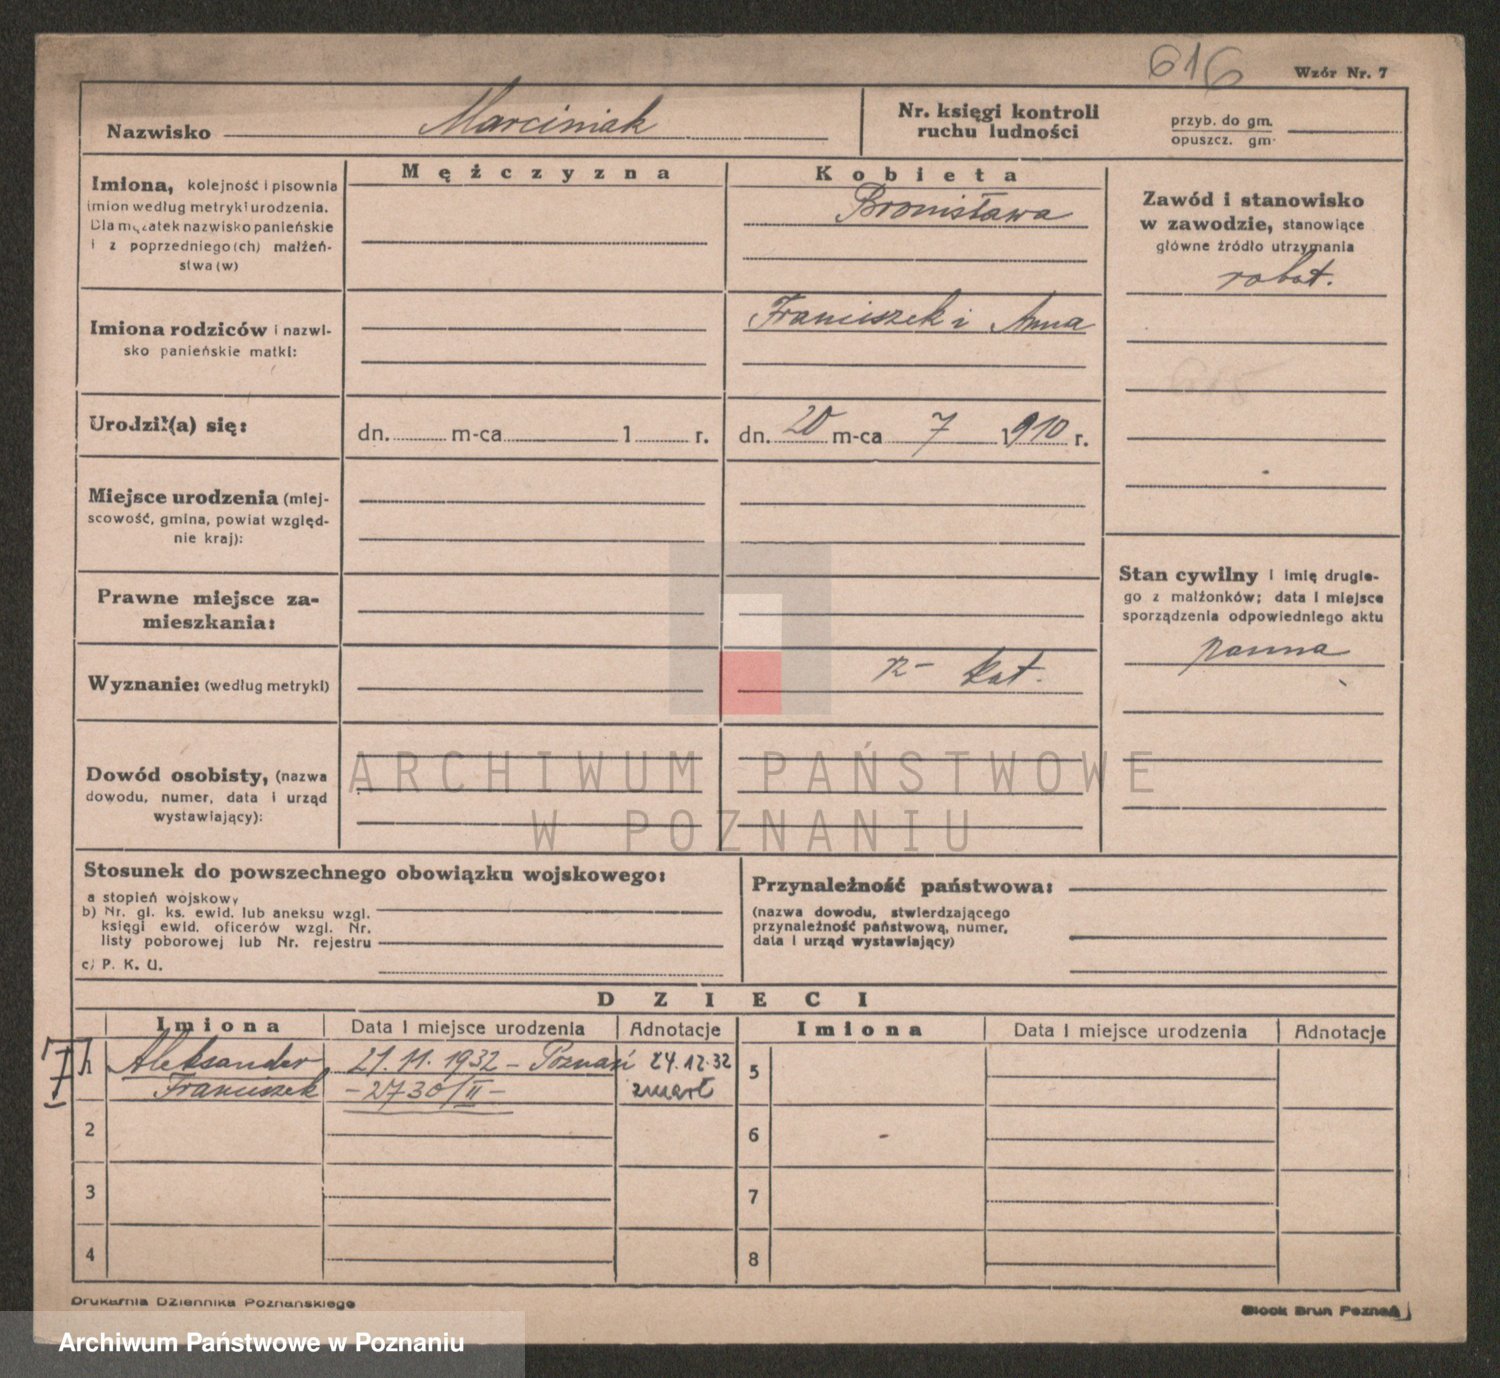 616
Wzór Nr. 7
Nazwisko Marciniak
Nr. księgi kontroli
ruchu ludności
przyb. do gm.
opuszcz. gm.
Imiona, kolejność i pisownia
imion według metryki urodzenia.
Dla mężatek nazwisko panieńskie
i z poprzedniego(ch) małżeń-
stwa (w)
Mężczyzna
Kobieta
Bronisława
Zawód i stanowisko
w zawodzie, stanowiące
główne źródło utrzymania
robot.
Imiona rodziców i nazwi-
sko panieńskie matki:
Franciszek i Anna
Urodził(a) się:
dn. m-ca 1 r.
dn. 20 m-ca 7 1910 r.
Miejsce urodzenia (miej-
scowość, gmina, powiat względ-
nie kraj):
Prawne miejsce za-
mieszkania:
Stan cywilny i imię drugie-
go z małżonków; data i miejsce
sporządzenia odpowiedniego aktu
panna
Wyznanie: (według metryki)
rz- kat.
Dowód osobisty, (nazwa
dowodu, numer, data i urząd
wystawiający):
ARCHIWUM PAŃSTWOWE
W POZNANIU
Stosunek do powszechnego obowiązku wojskowego:
a stopień wojskowy
b) Nr. gl. ks. ewid. lub aneksu wzgl.
księgi ewid. oficerów wzgl. Nr.
listy poborowej lub Nr. rejestru
c) P. K. U.
Przynależność państwowa:
(nazwa dowodu, stwierdzającego
przynależność państwową, numer,
data i urząd wystawiający)
DZIECI
Imiona Data i miejsce urodzenia Adnotacje Imiona Data i miejsce urodzenia Adnotacje
Aleksander 21.11.1932 - Poznań 24.12.32 5
Franciszek -2730/II- zmarł
2 6
3 7
4 8
Drukarnia Dziennika Poznańskiego
Block Brun Poznań
Archiwum Państwowe w Poznaniu